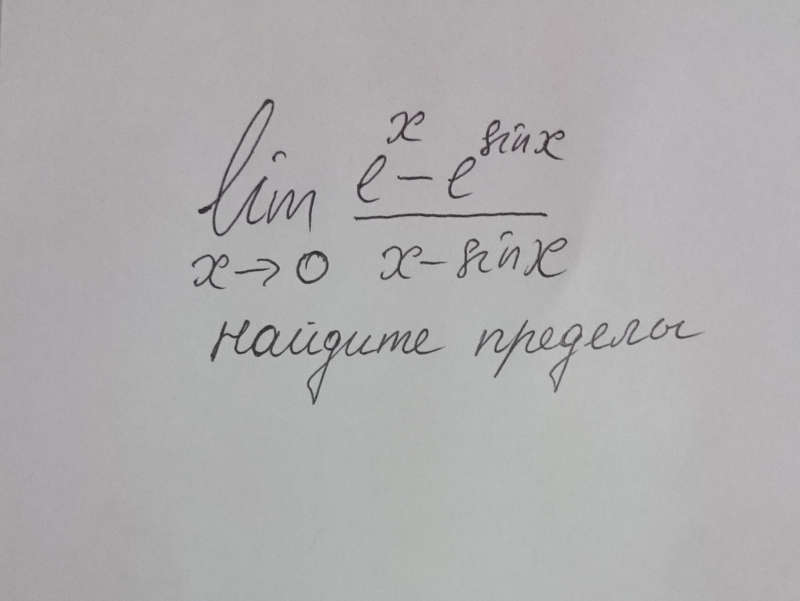 lim e^x - e^sinx / x - sinx
x→0
найдите пределы